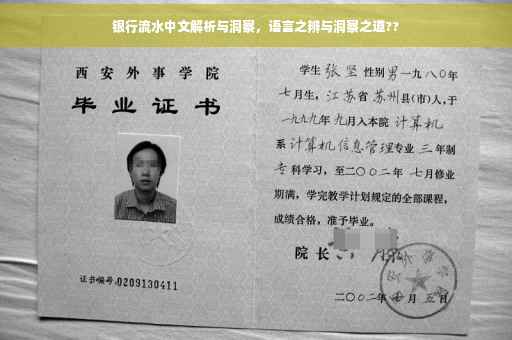 银行流水中文解析与洞察，语言之辨与洞察之道??
西安外事学院
毕业证书
证书编号:0209130411
学生 张坚 性别男 一九八〇年
七月生，江苏省苏州县(市)人，于
一九九九年 九月入本院 计算机
系 计算机信息管理专业 三 年制
专 科学习，至二〇〇二年 七月修业
期满，学完教学计划规定的全部课程，
成绩合格，准予毕业。
院长
二〇〇二年 月 五 日